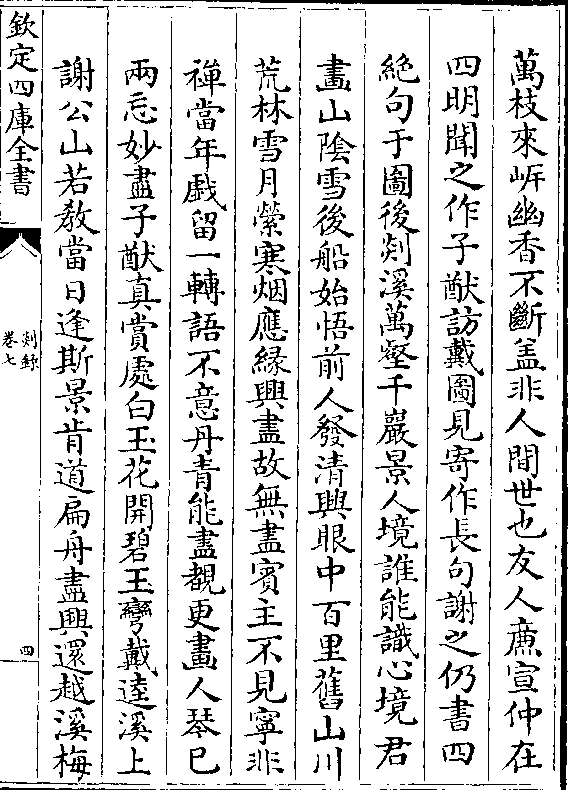 萬枝來岍幽香不斷盖非人間世也友人㢘宣仲在
四明聞之作子猷訪戴圖見寄作長句謝之仍書四
絶句于圖後剡溪萬壑千巖景人境誰能識心境君
畫山陰雪後船始悟前人發清興眼中百里舊山川
荒林雪月縈寒烟應緣興盡故無盡賓主不見寧非
禪當年戲留一轉語不意丹青能盡覩更畫人琴已
兩忘妙盡子猷真賞處白玉花開碧玉彎戴逵溪上
謝公山若教當日逢斯景肯道扁舟盡興還越溪梅
欽定四庫全書
剡錄
卷七
四